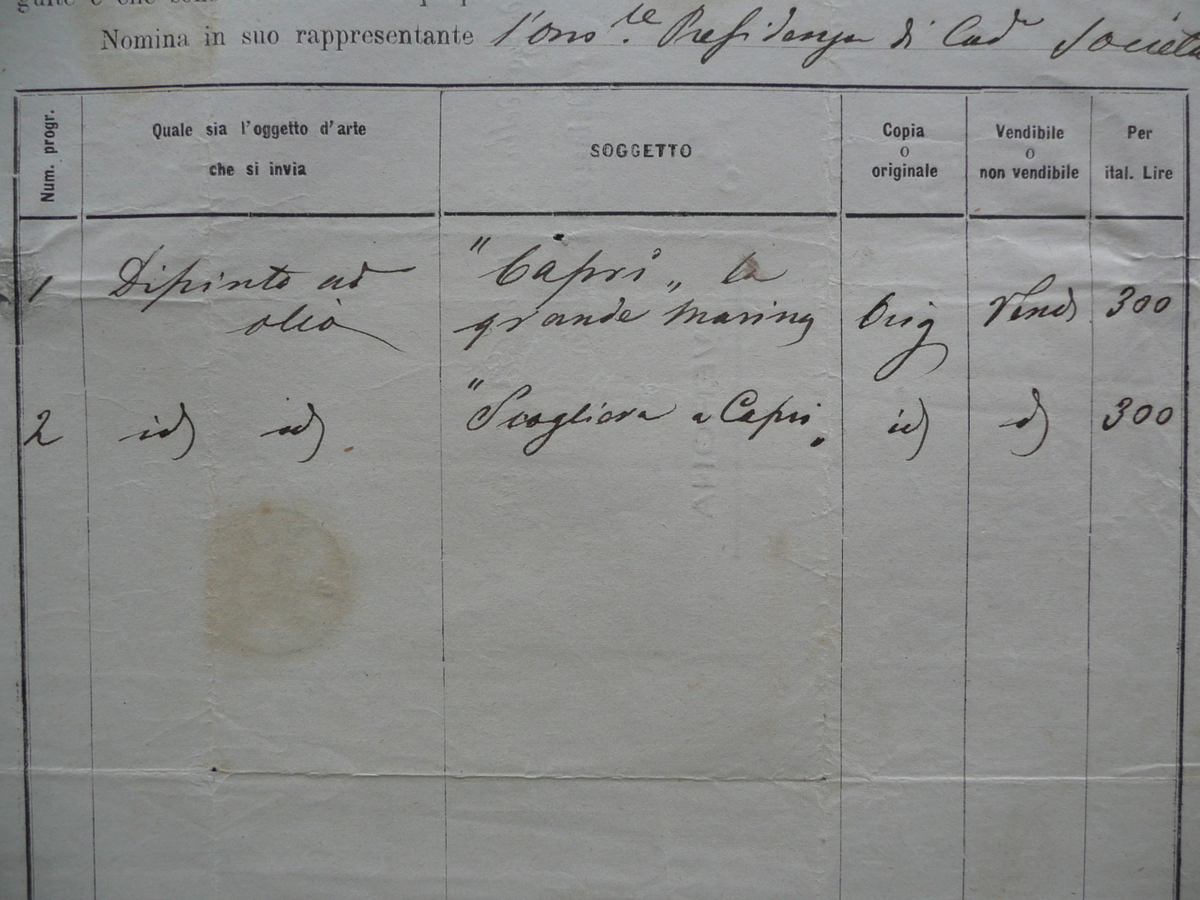 Nomina in suo rappresentante l'Ono.le Presidenza di Cod Società
Num. progr.
Quale sia l'oggetto d'arte
che si invia
SOGGETTO
Copia
o
originale
Vendibile
o
non vendibile
Per
ital. Lire
1 Dipinto ad "Capri„ la
olio grande marina Orig Vend 300
2 id id "Scogliera a Capri„ id d 300